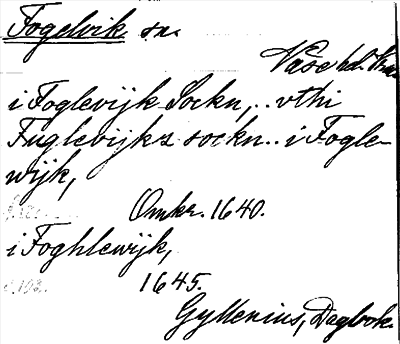 Fogelvik sn.
Väse hd.
i Foglevijk Sockn, .. vthi
Fuglevijks sockn .. i Fogle-
wijk,
Omkr. 1640.
i Foghlewijk,
1645.
Gyllenius, Dagbok.